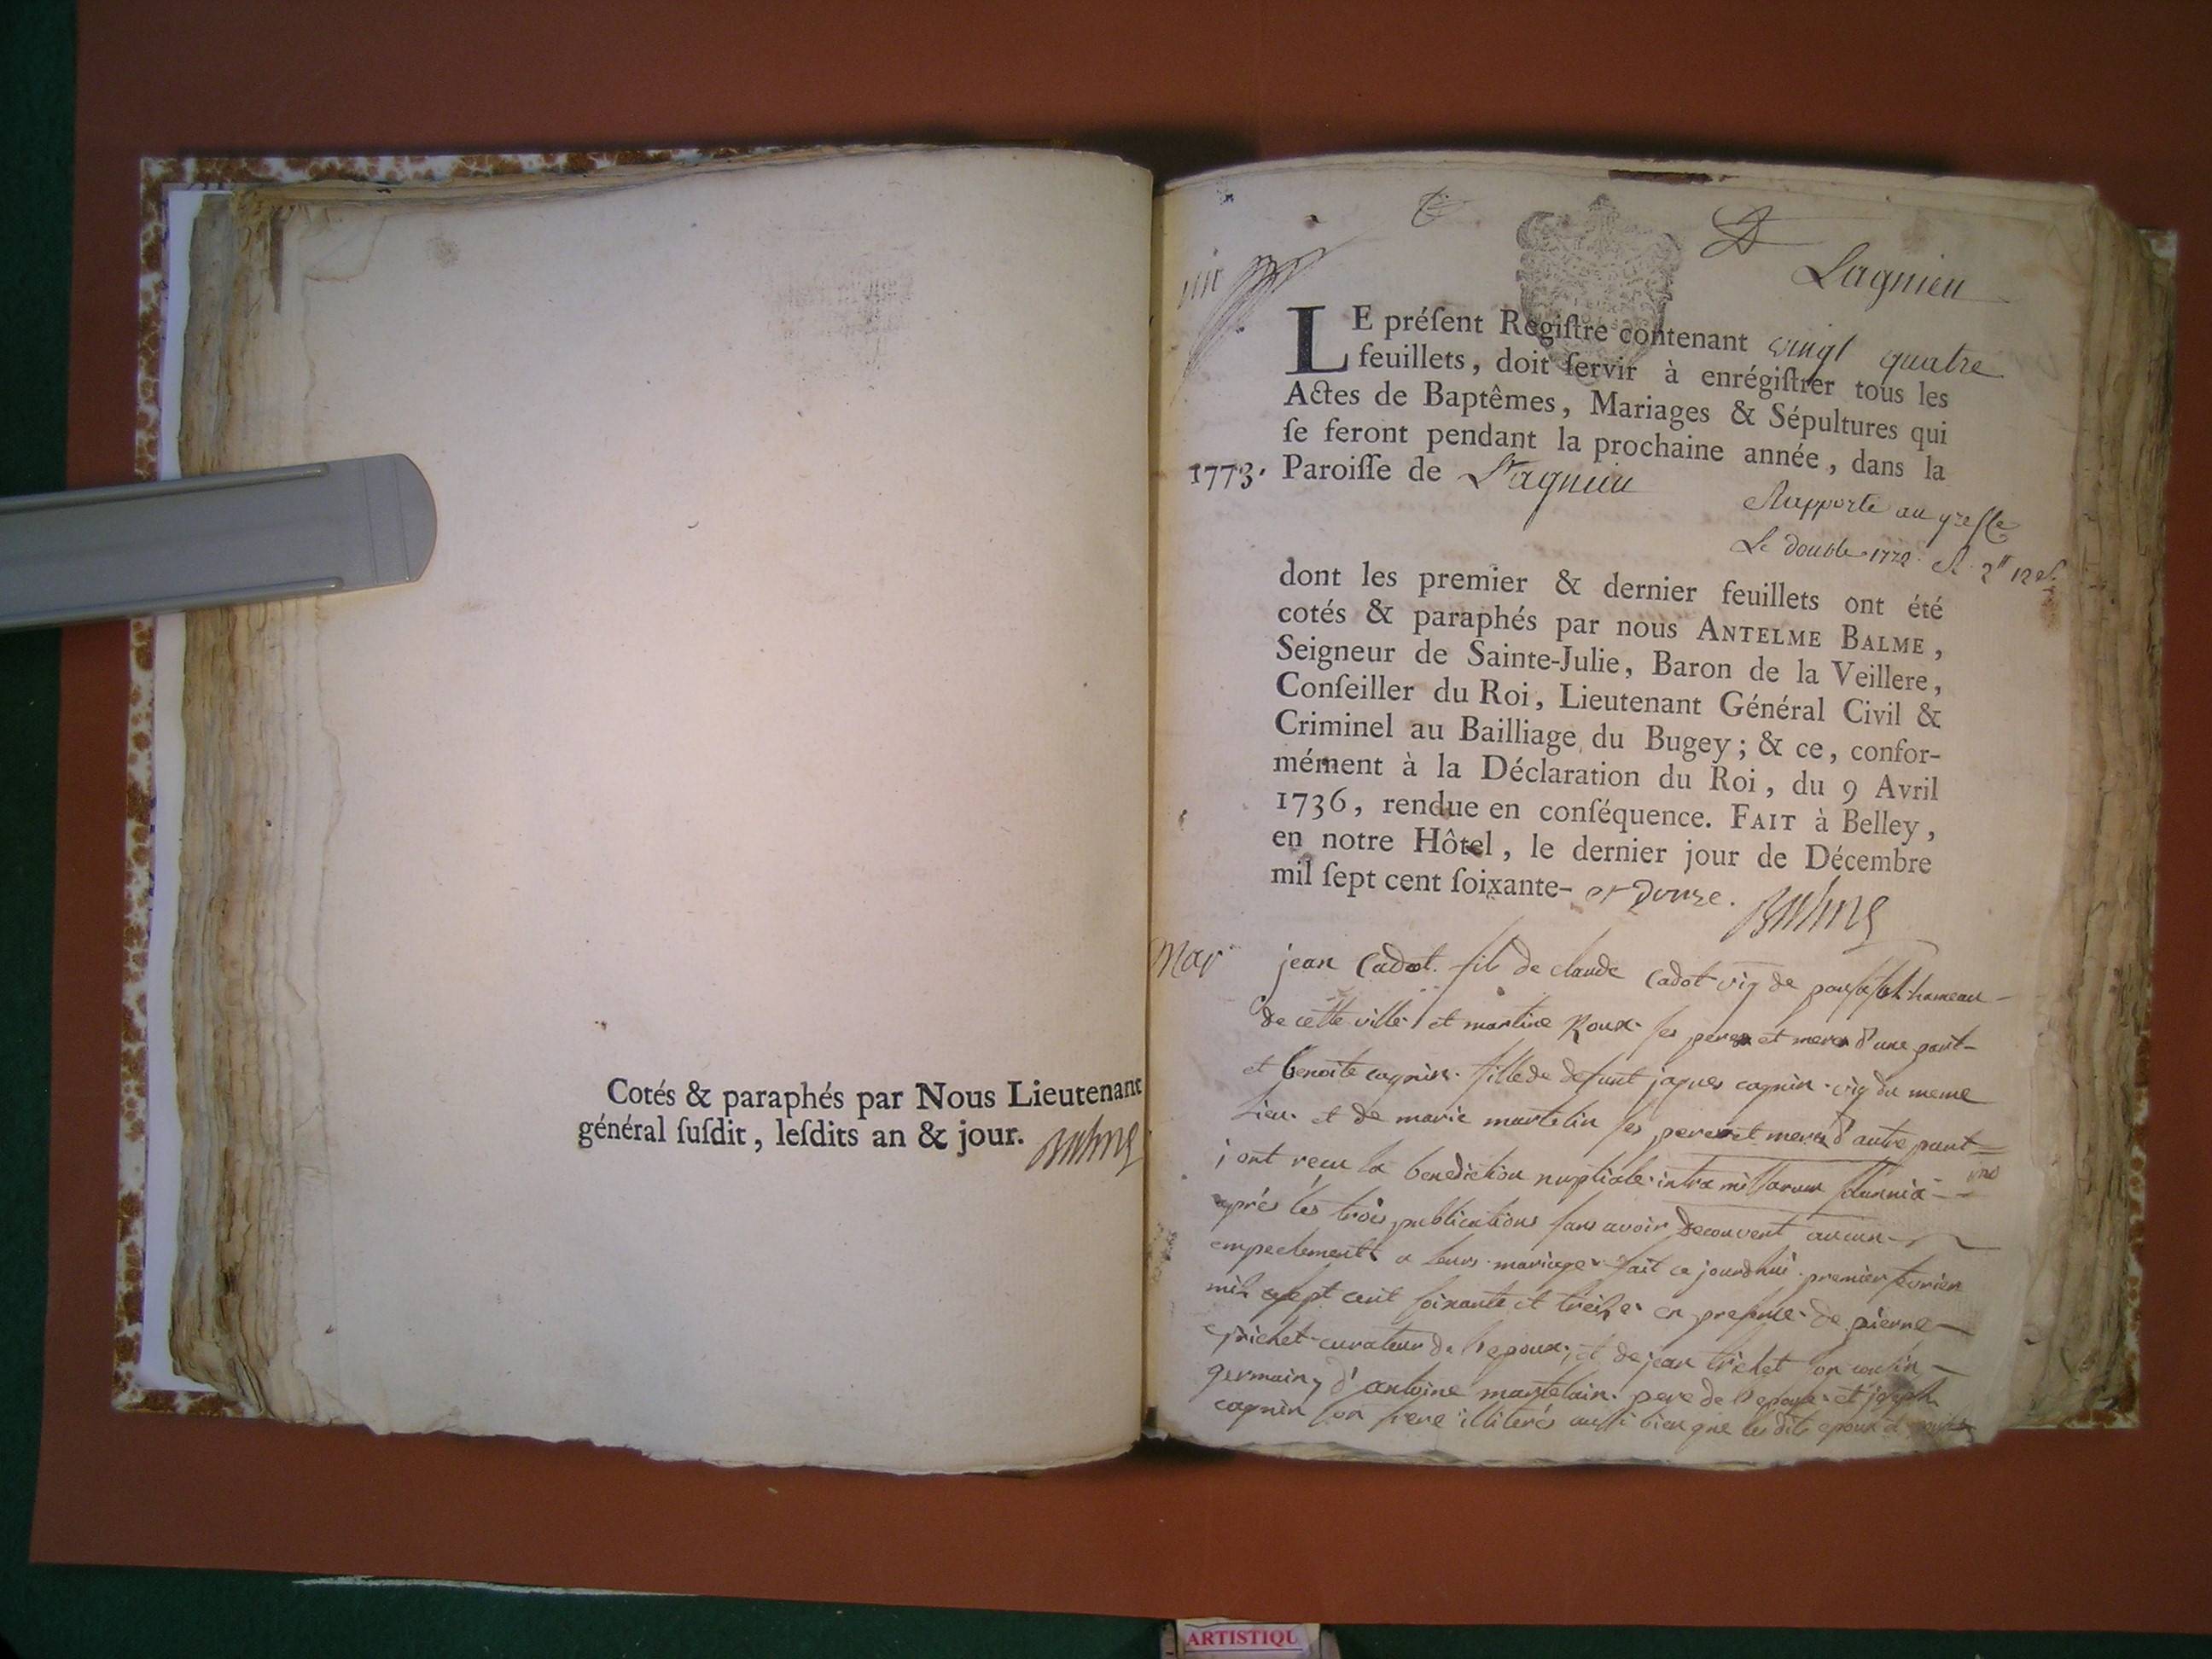 Cotés & paraphés par Nous Lieutenant
général ſuſdit, leſdits an & jour. Balme
Lagnieu
LE préſent Regiſtre contenant vingt quatre
feuillets, doit ſervir à enrégiſtrer tous les
Actes de Baptêmes, Mariages & Sépultures qui
ſe feront pendant la prochaine année, dans la
1773. Paroiſſe de Lagnieu
Rapporté au greffe
Le double 1772
dont les premier & dernier feuillets ont été
cotés & paraphés par nous ANTELME BALME,
Seigneur de Sainte-Julie, Baron de la Veillere,
Conſeiller du Roi, Lieutenant Général Civil &
Criminel au Bailliage du Bugey; & ce, confor-
mément à la Déclaration du Roi, du 9 Avril
1736, rendue en conſéquence. FAIT à Belley,
en notre Hôtel, le dernier jour de Décembre
mil ſept cent ſoixante- et douze. Balme
Mar jean Cadot fils de claude Cadot vig de hameau
de cette ville et martine Roux ses peres et meres d'une part
et benoite cagnin fille de defunt jaques cagnin vig du meme
lieu et de marie martelin ses peres et meres d'autre part
ont reçu la benediction nuptiale intra missarum solemnia
après les trois publications sans avoir decouvert aucun
empechement a leurs mariage fait ce jourdhui premier fevrier
mil sept cent soixante et treize en presence de pierre
trichet curateur de l'epoux, et de jean trichet son cousin
germain, d'antoine martelain pere de l'epouse et joseph
cagnin son frere illiterés aussi bien que les dits epoux
ARTISTIQU